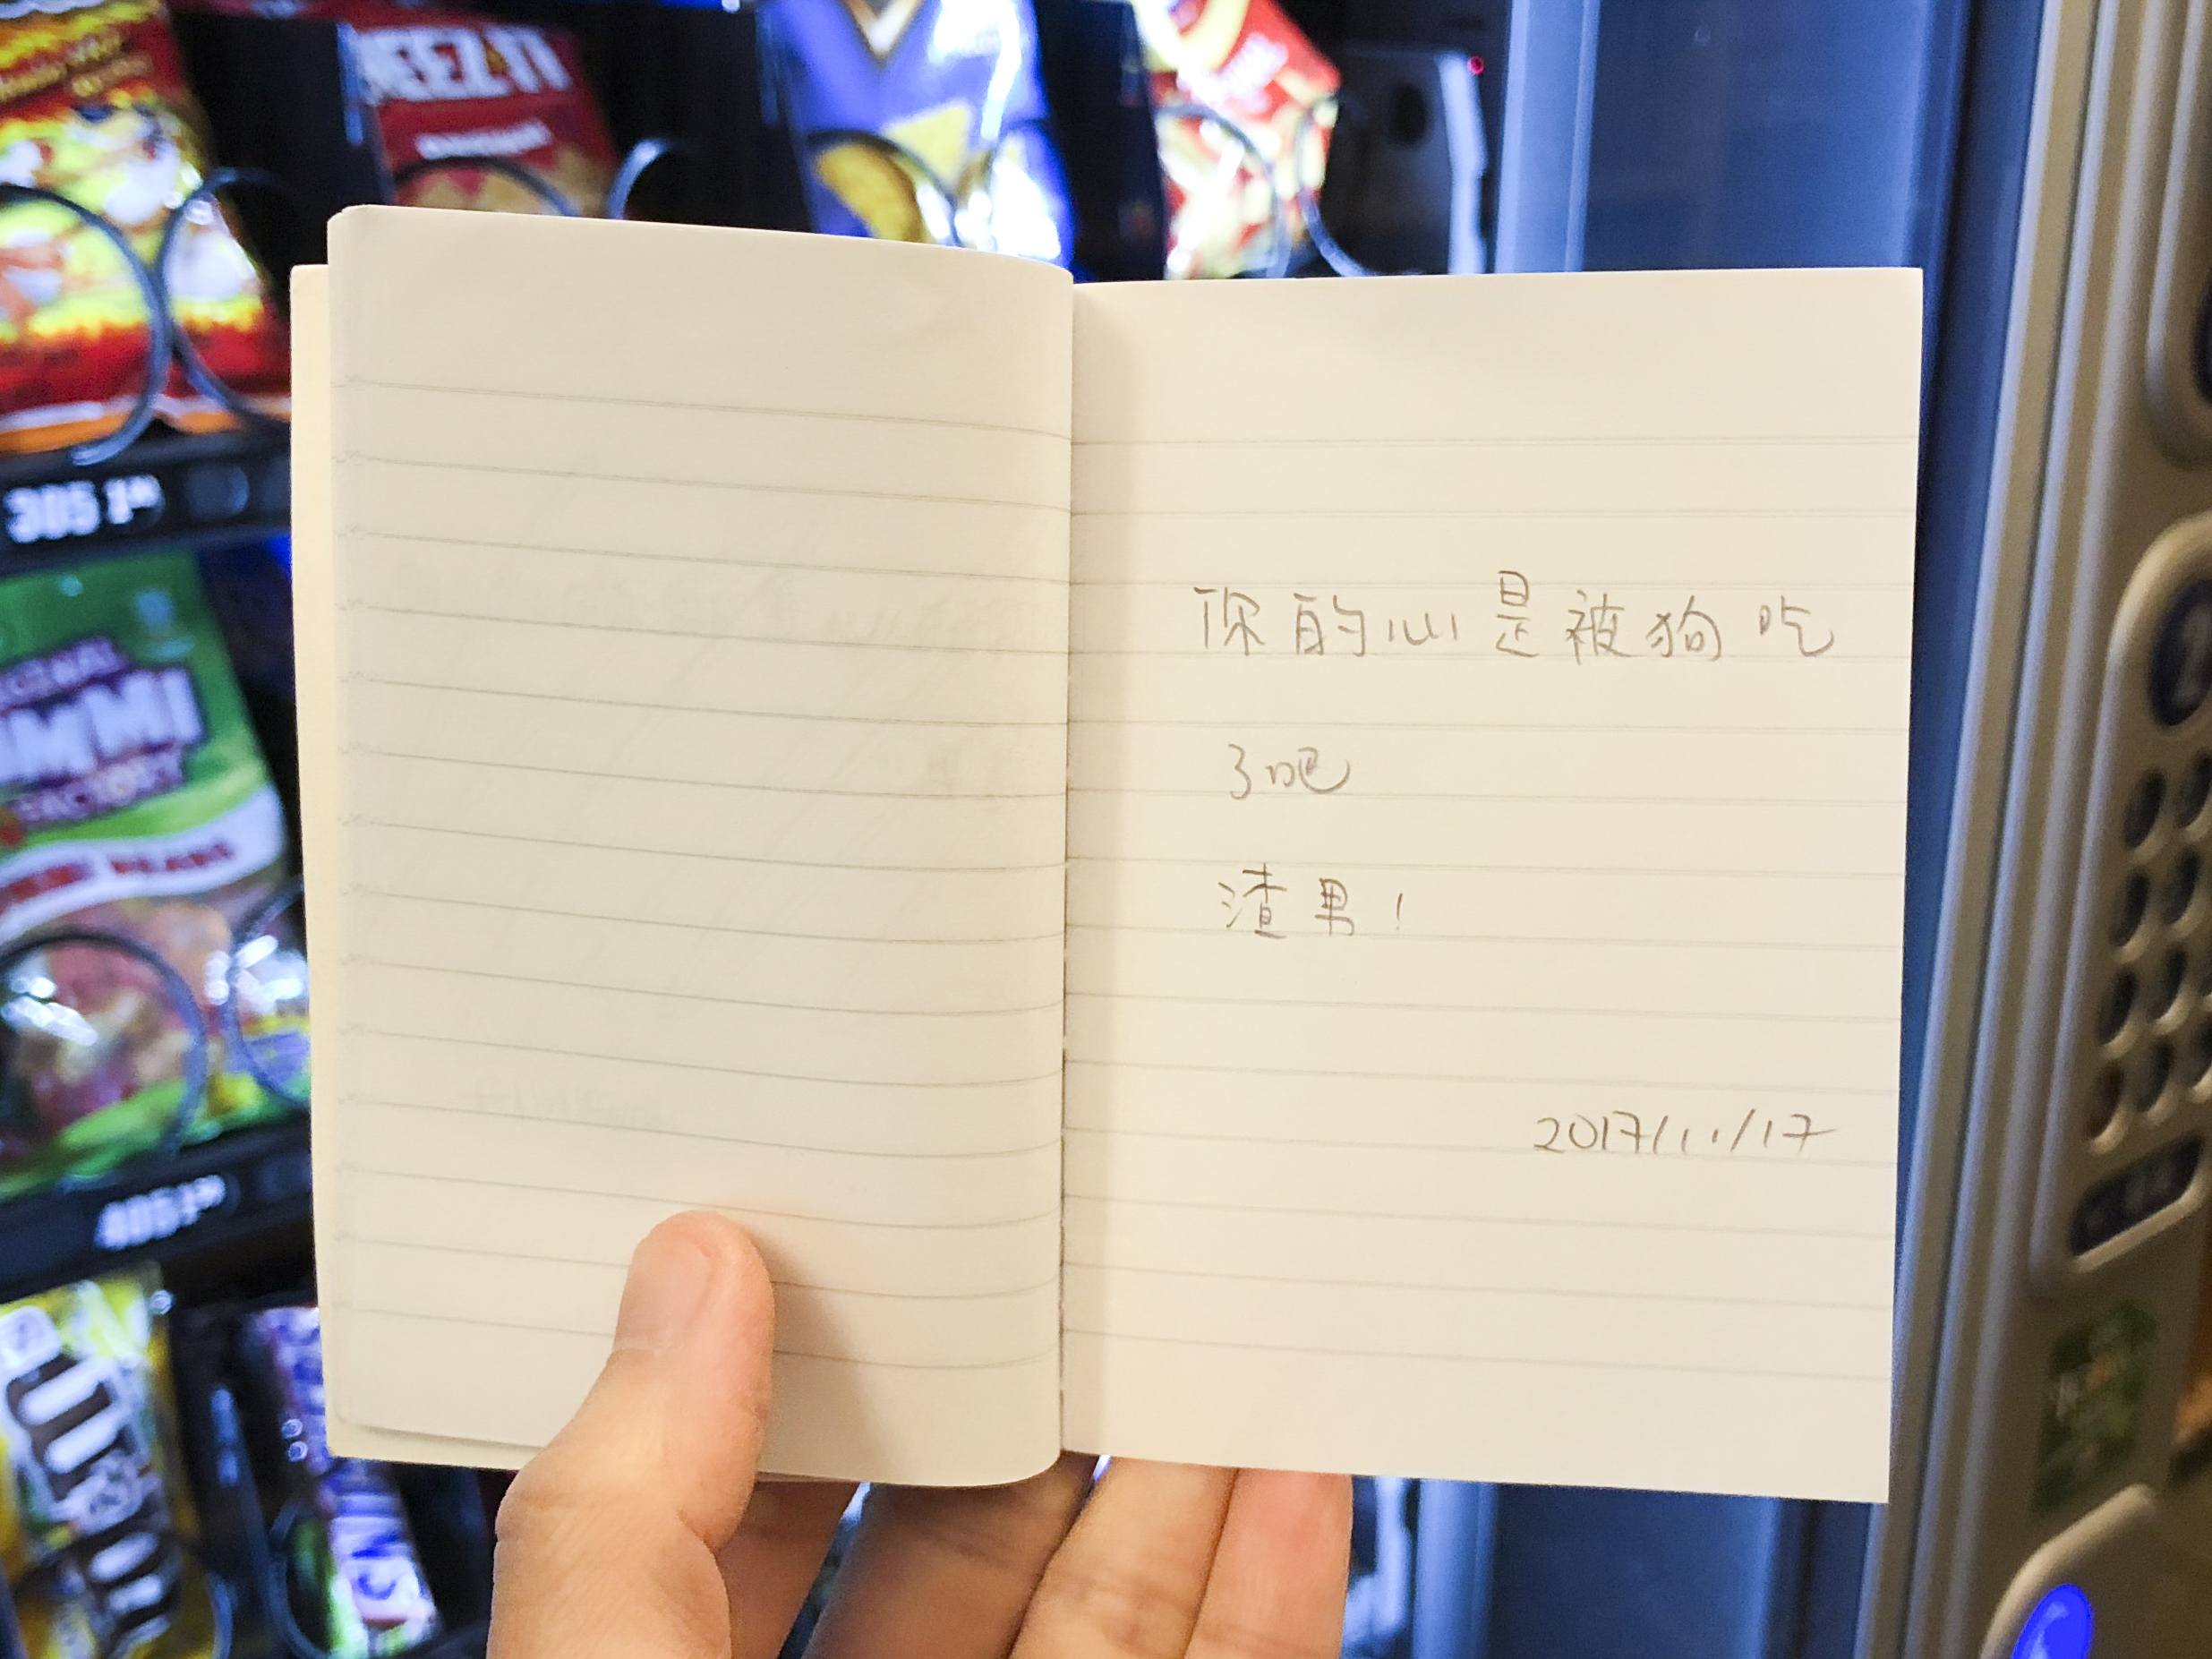 EEZ-IT
305
你的心是被狗吃
了吧
渣男!
MMI
FACTORY
2017/11/17
405